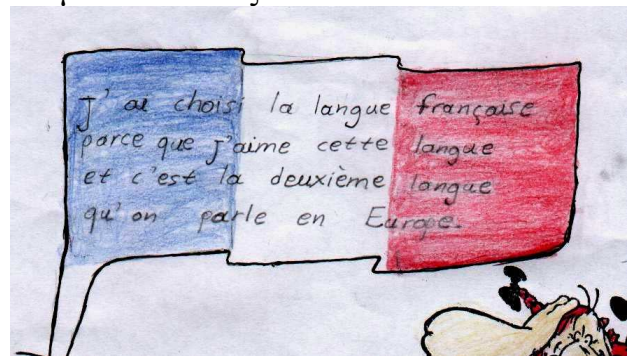 J'ai choisi la langue française
parce que j'aime cette langue
et c'est la deuxième langue
qu'on parle en Europe.